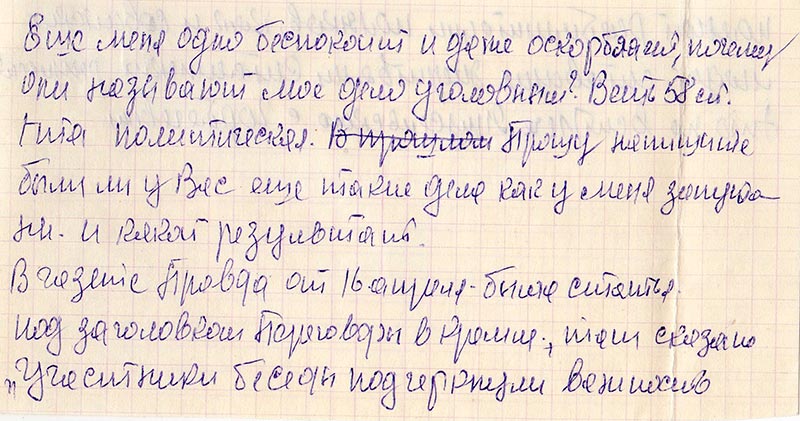 Еще меня одно беспокоит и даже оскорбляет, почему
они называют мое дело уголовным? Веть 58 ст.
Гита политическая. В прошлом Прошу напишите
были ли у Вас еще такие дела как у меня запута-
ни. и какой результат.
В газете Правда от 16 апреля. была статья.
под заголовком Переговоры в Кремле., там сказано
"Участники беседы подчеркнули важность